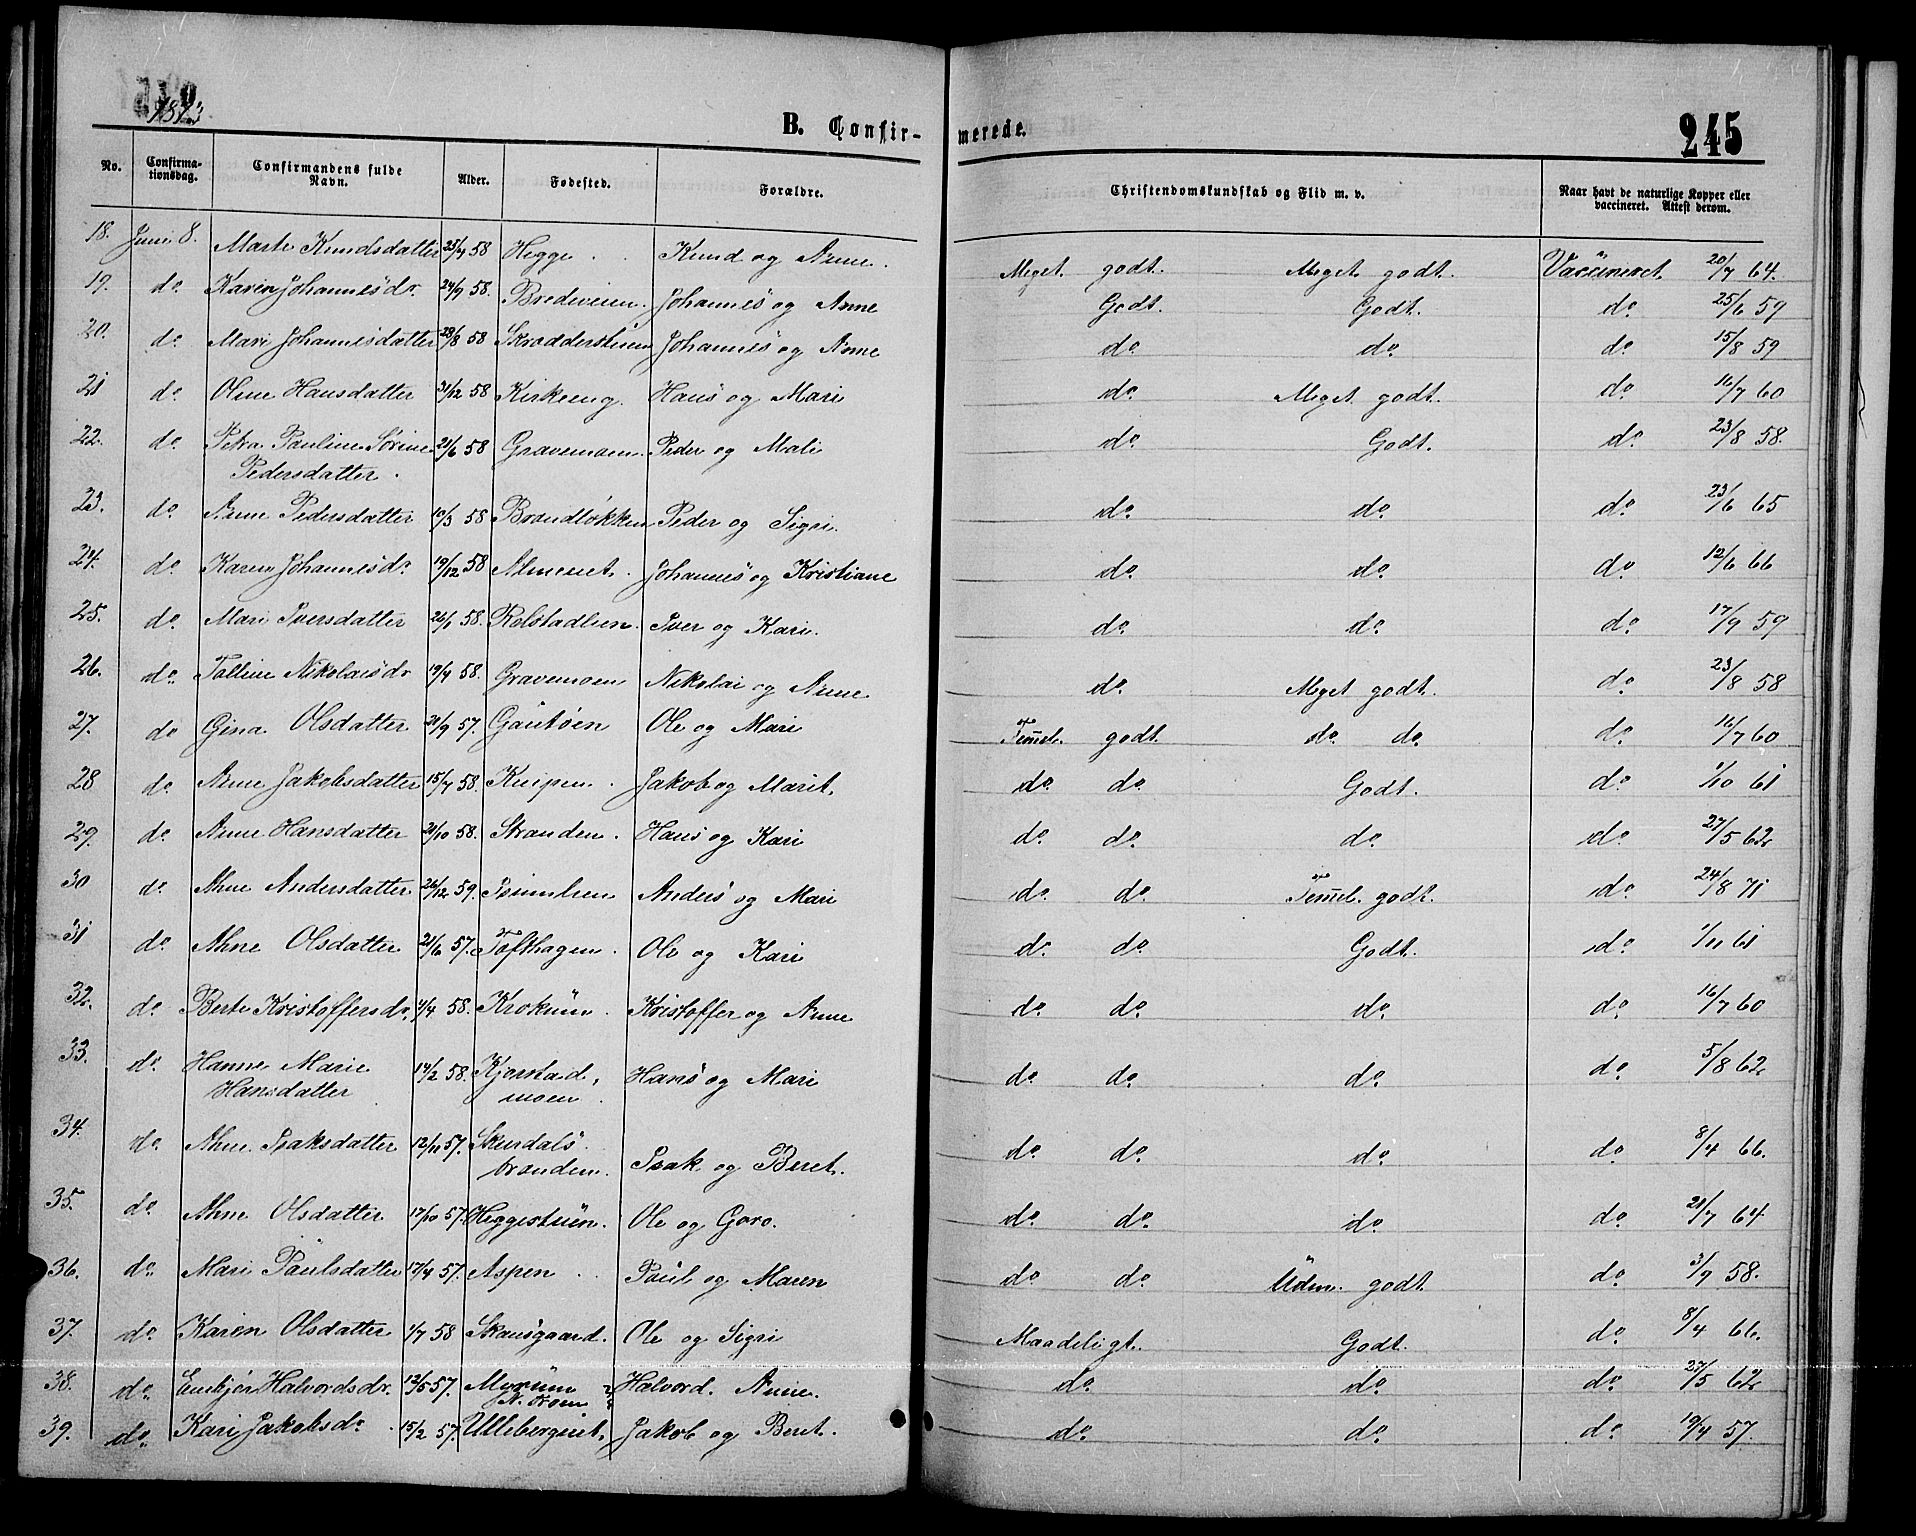 1873.
B. Confir-
merede.
245
No. Confirma-tionsdag. Confirmandens fulde Navn. Alder. Fødested. Forældre. Christendomskundskab og Flid m. v. Naar havt de naturlige Kopper eller vaccineret. Attest derom.
18. Juni 8. Marte Knudsdatter 25/4 58 Hegge. Knud og Anne. Meget godt. Meget godt. Vaccineret 20/7 64.
19. do. Karen Johannesdr. 24/9 58. Bredeveien. Johannes og Anne Godt. Godt. do. 25/6 59
20. do. Mari Johannesdatter 28/8 58 Johannes og Anne do. do. do. 15/8 59
21 do. Oline Hansdatter 31/12 58 Kirkeeng. Hans og Mari do. Meget godt. do. 16/7 60
22. do. Petra Pauline Sørine 21/6 58 Gravemoen. Peder og Mali do. Godt. do. 23/8 58.
Pedersdatter.
23. do. Anne Pedersdatter 10/3 58 Brandløkken Peder og Sigri. do. do. do. 23/6 65
24. do. Karen Johannesdr. 19/12 58 Almenet. Johannes og Kristiane do. do. do. 12/6 66
25. do. Mari Iversdatter 58. Rolstadlien. Iver og Kari. do. do. do. 17/9 59
26. do. Talline Nikolaisdr 19/4 58. Gravemoen Nikolai og Anne do. Meget godt. do. 23/8 58
27. do Gina Olsdatter 21/9 57. Gautøen Ole og Mari Temel. godt do. do. do. 16/7 60
28 do. Anne Jakobsdatter 15/7 58. Knipen. Jakob og Marit. do. do. Godt. do. 1/10 61
29. do. Anne Hansdatter 21/10 58. Stranden. Hans og Kari do. do. do. do. 27/5 62
30 do. Ahne Andersdatter 26/12 59. Anders og Mari do. do. Temel. godt. do. 24/8 71
31 do. Ahne Olsdatter 21/6 57. Tofthagen. Ole og Kari do. do. Godt. do. 1/11 61
32. do. Berte Kristoffersdr. 4/4 58. Krokum. Kristoffer og Anne do. do. do. do. 16/7 60
33. do. Hanne Marie 14/2 58. Kjørstad, Hans og Mari do. do. do. do. 5/8 62
Hansdatter moen.
34. do. Ahne Isaksdatter 12/11 57. Skurdals. Isak og Beret. do. do. do. do. 8/4 66.
branden.
35. do. Ahne Olsdatter 17/10 57. Heggestuen. Ole og Goro. do. do. do. do. 20/7 64
36. do. Mari Paulsdatter 17/4 57. Aspen. Paul og Maren do. do. Udm. godt do. 3/9 58.
37. do. Karen Olsdatter 1/7 58 Skansgaard. Ole og Sigri Maadeligt. Godt. do. 8/4 66.
38. do. Embjør Halvordsdr. 12/5 57. Myrum Halvord. Anne. do. do. do. 27/5 62
N. From
39. do. Kari Jakobsdr. 15/2 57. Ullebergeiet. Jakob og Beret. do. do. do. 19/4 57.